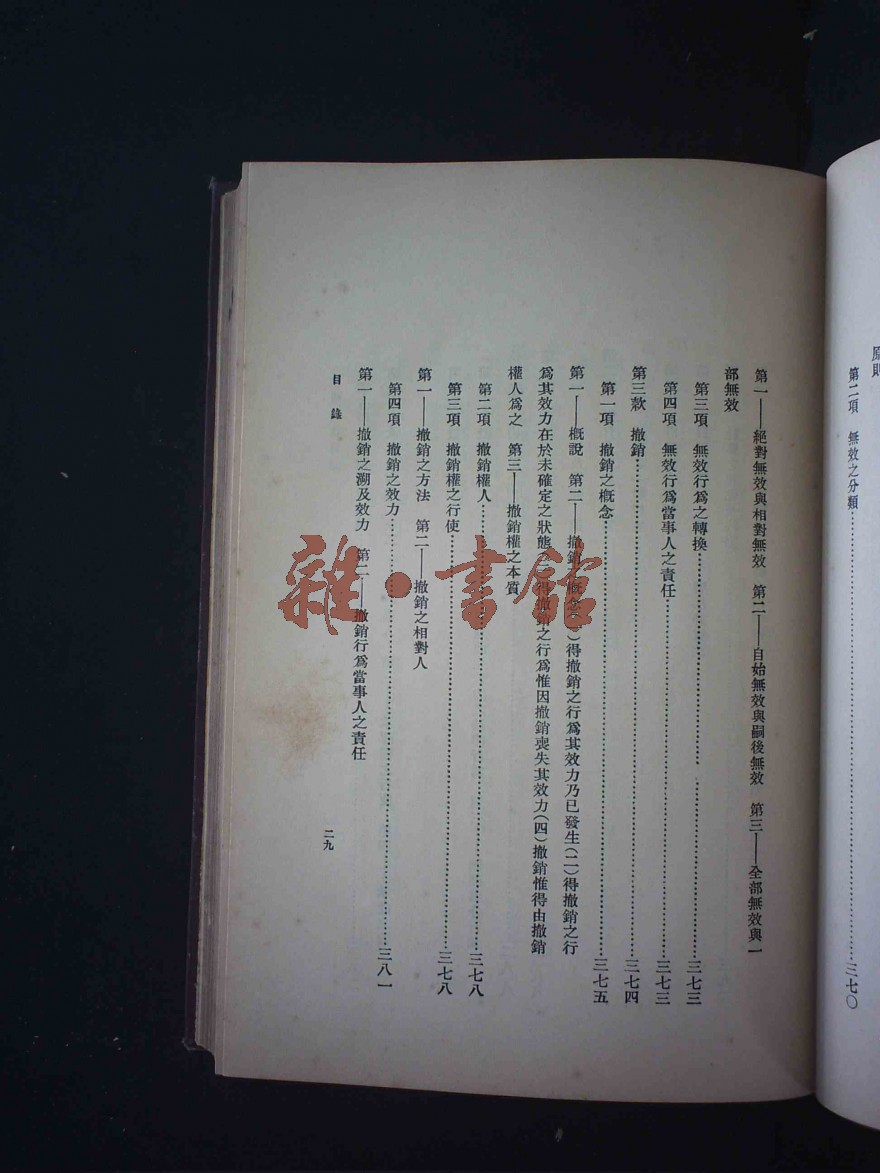 原則
第二項　無效之分類……………………三七〇
第一——絕對無效與相對無效　第二——自始無效與嗣後無效　第三——全部無效與一
部無效
第三項　無效行爲之轉換……………………三七三
第四項　無效行爲當事人之責任……………………三七三
第三款　撤銷……………………三七四
第一項　撤銷之概念……………………三七五
第一——概說　第二——撤銷之概念(一)得撤銷之行爲其效力乃已發生(二)得撤銷之行
爲其效力在於未確定之狀態(三)得撤銷之行爲惟因撤銷喪失其效力(四)撤銷惟得由撤銷
權人爲之　第三——撤銷權之本質
第二項　撤銷權人……………………三七八
第三項　撤銷權之行使……………………三七八
第一——撤銷之方法　第二——撤銷之相對人
第四項　撤銷之效力……………………三八一
第一——撤銷之溯及效力　第二——撤銷行爲當事人之責任
目錄
二九
雜·書館